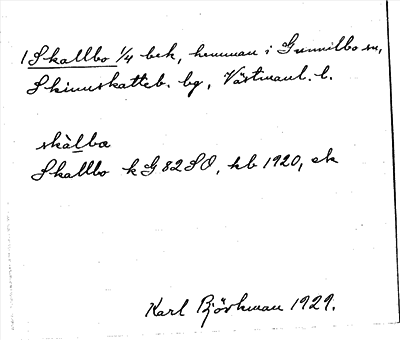 1 Skallbo 1/4 bek, hemman i Gunnilbo sn,
Skinnskatteb. bg, Västmanl. l.
skàlba
Skallbo k G 82 SO, kb 1920, ek
Karl Björkman 1929.